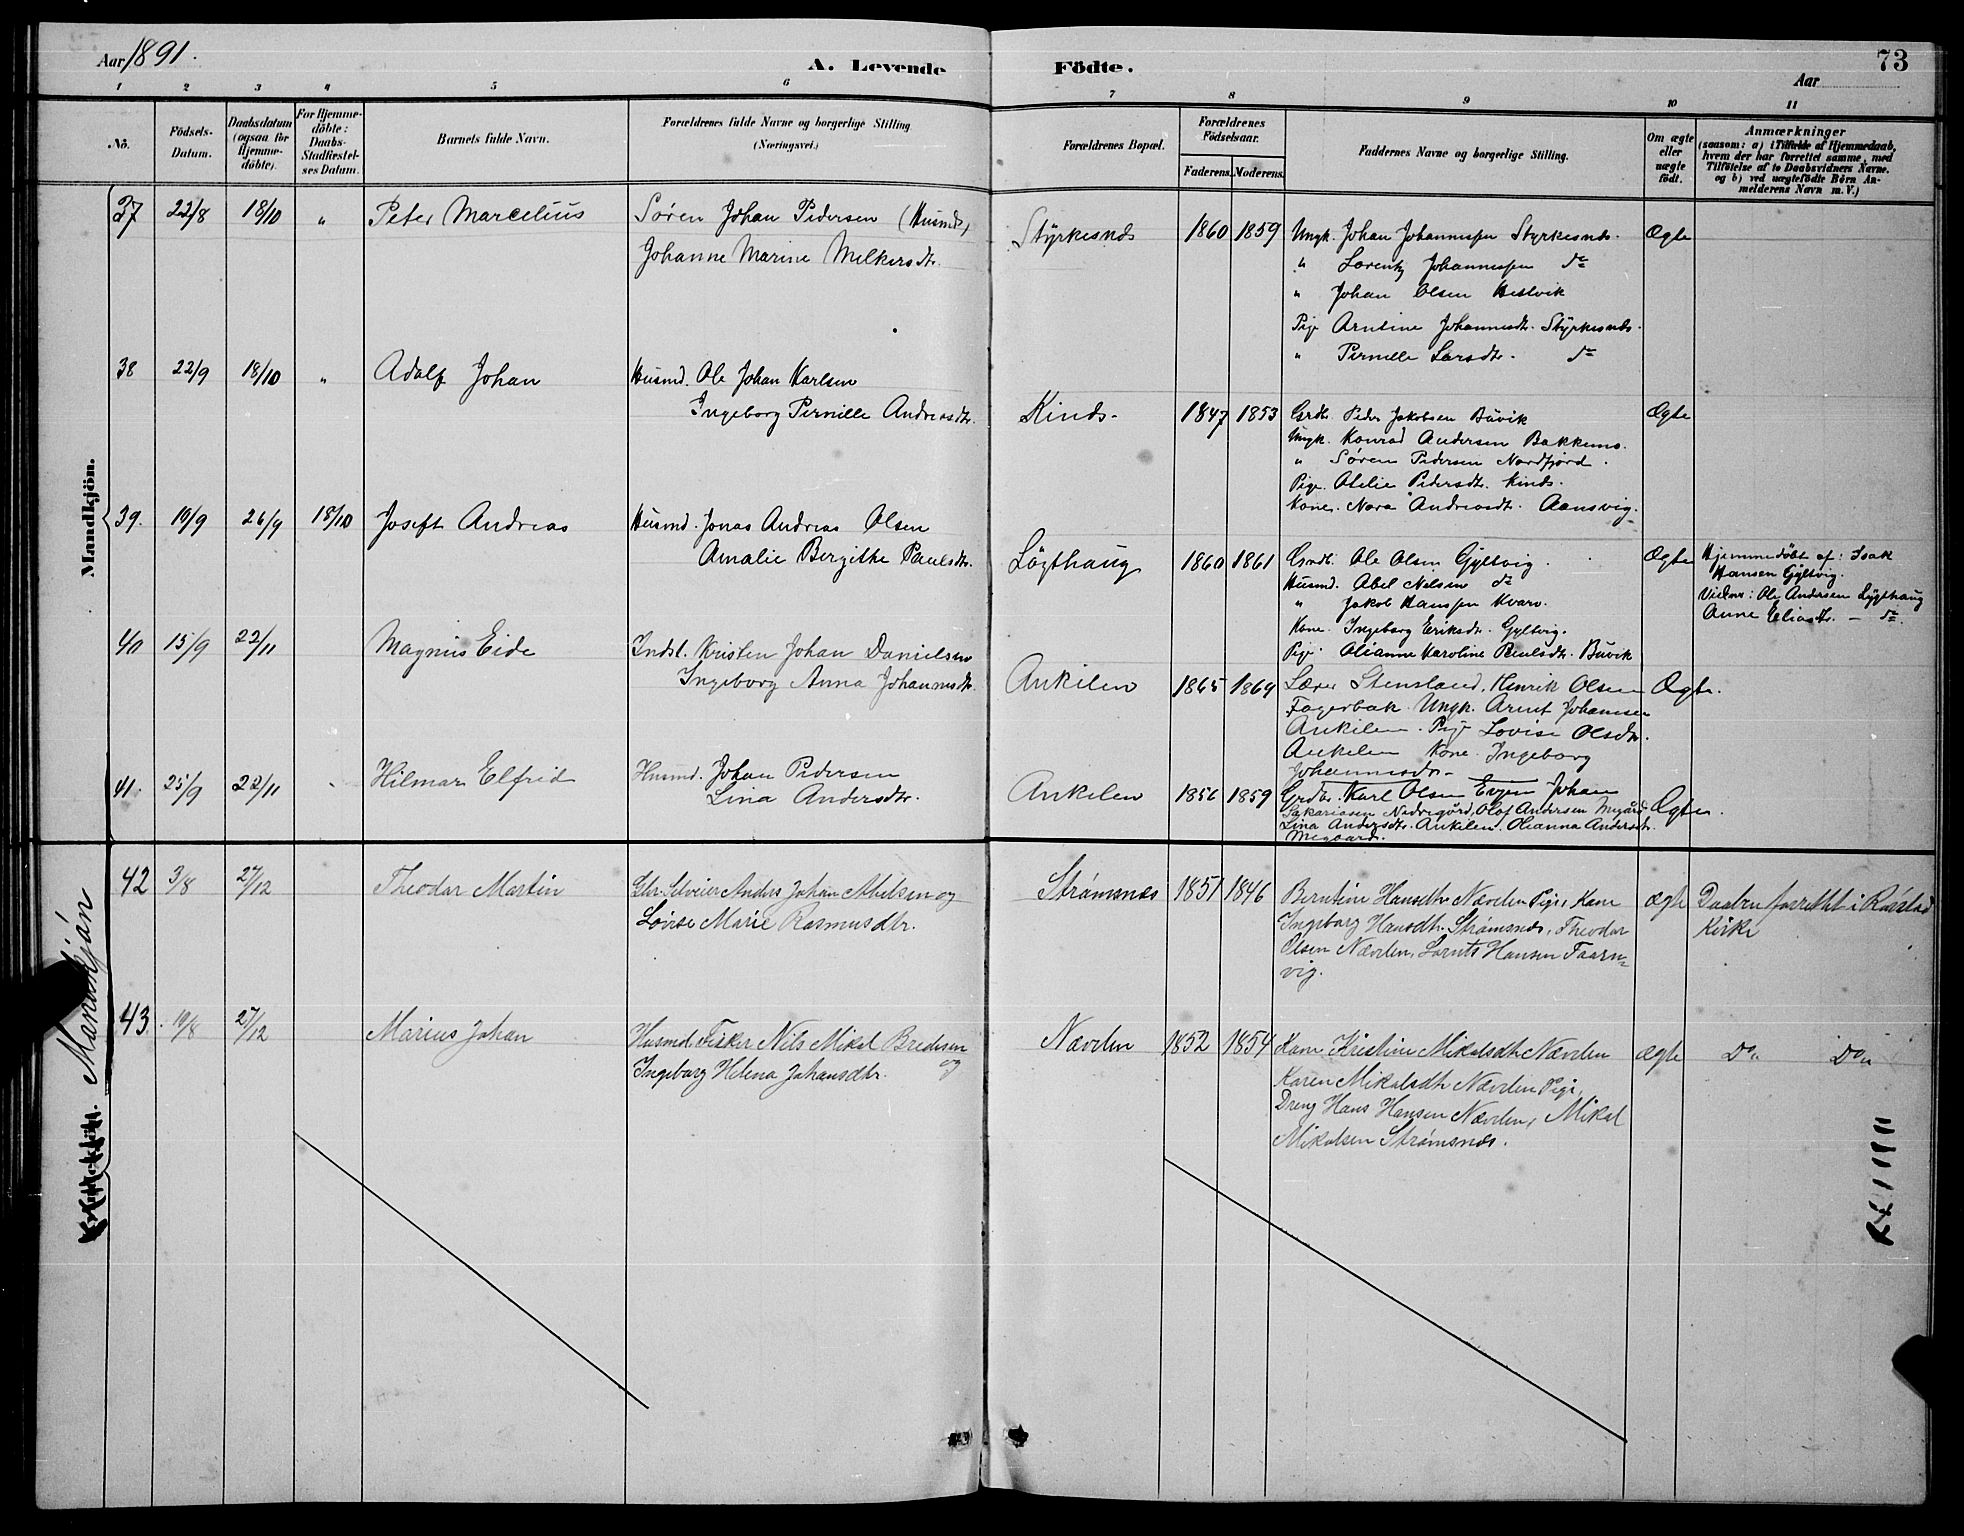 Aar 1891.
A. Levende Födte.
Aar
73
1 2 3 4 5 6 7 8 9 10 11
No.
Födsels-Datum.
Daabsdatum (ogsaa for Hjemme-döbte).
For Hjemme-döbte: Daabs-Stadfæstel-ses Datum.
Barnets fulde Navn.
Forældrenes fulde Navne og borgerlige Stilling (Næringsvei.)
Forældrenes Bopæl.
Forældrenes Födselsaar.
Faderens. Moderens.
Faddernes Navne og borgerlige Stilling.
Om ægte eller uægte födt.
Anmærkninger
(saasom: a) i Tilfælde af Hjemmedaab, hvem der har forrettet samme, med Tilföielse af to Daabsvidners Navne. og b) ved uægtefödte Börn An-melderens Navn m. V.)
Mandkjön.
37 22/8 18/10 " Peter Marcelius
Søren Johan Pedersen (Husmd.)
Johanne Marine Melkersdtr.
Styrkesnæs 1860 1859
Ungk. Johan Johannesen Styrkesnæs.
" Lorentz Johannesen do
" Johan Olsen Hestvik
Pige Arntine Johannesdtr. Styrkesnæs.
" Pernille Larsdtr. do
Ægte
38 22/9 18/10 " Adolf Johan
Husmd. Ole Johan Karlsen
Ingeborg Pernille Andreasdtr.
Kinds- 1847 1853
Grdbr. Peder Jakobsen Buvik
Ungk. Konrad Andersen Bakkemo.
" Søren Pedersen Nordfjord.
Pige. Otelie Pedersdtr. Kinds.
Kone. Nora Andreasdtr. Aansvig.
Ægte
39. 19/9 26/9 18/10 Joseft Andreas
Husmd. Jonas Andreas Olsen
Amalie Bergithe Paulsdtr.
Løgthaug 1860 1861
Grndb. Ole Olsen Gyltvig.
Husmd. Abel Nelsen do
" Jakob Hanssen Kvarv.
Kone. Ingeborg Eriksdtr. Gyltvig.
Pige. Olianne Karoline Paulsdtr. Buvik
Ægte
Hjemmedøbt af: Isak
Hansen Gyltvig.
Vidner: Ole Andersen Løgthaug
Anne Eliasdtr. - do.
40 15/9 22/11 Magnus Eide
Indst. Kristen Johan Danielsen
Ingeborg Anna Johannesdtr.
Ankilen 1865 1869
Lærer Stensland, Henrik Olsen
Fagerbak. Ungk. Arnt Johansen
Ankilen. Pige Lovise Olsdtr.
Ankelen Kone Ingeborg
Johannesdtr.-
Ægte.
41. 25/9 22/11 Hilmar Elfrid
Husmd. Johan Pedersen
Lina Andersdtr.
Ankilen 1856 1859
Grdbr. Karl Olsen Evjen Johan
Sakariasen Nedregård, Olaf Andersen Megård
Lina Andersdtr. Ankilen. Olianna Andersdtr.
Megaard.
Ægte.
Mandkjön
42 3/8 27/12 Theodor Martin
Gbr. Selveier Anders Johan Abelsen og
Lovise Marie Rasmusdtr.
Strømsnæs 1851 1846
Berntine Hansdtr Nævelen Pige, Kone
Ingeborg Hansdtr. Strømsnæs, Theodor
Olsen Nævelen, Lornts Hansen Faarn-
vig.
ægte
Daaben forrettet i Rørstad
Kirke
43. 10/8 27/12 Marius Johan
Husmd. Fisker Nils Mikal Bredesen og
Ingeborg Helena Johansdtr.
Nævelen 1852 1854
Kone Kristine Mikalsdtr Nævelen
Karen Mikalsdtr Nævelen Pige,
Dreng Hans Hansen Nævelen, Mikal
Mikalsen Strømsnæs.
ægte
Do Do